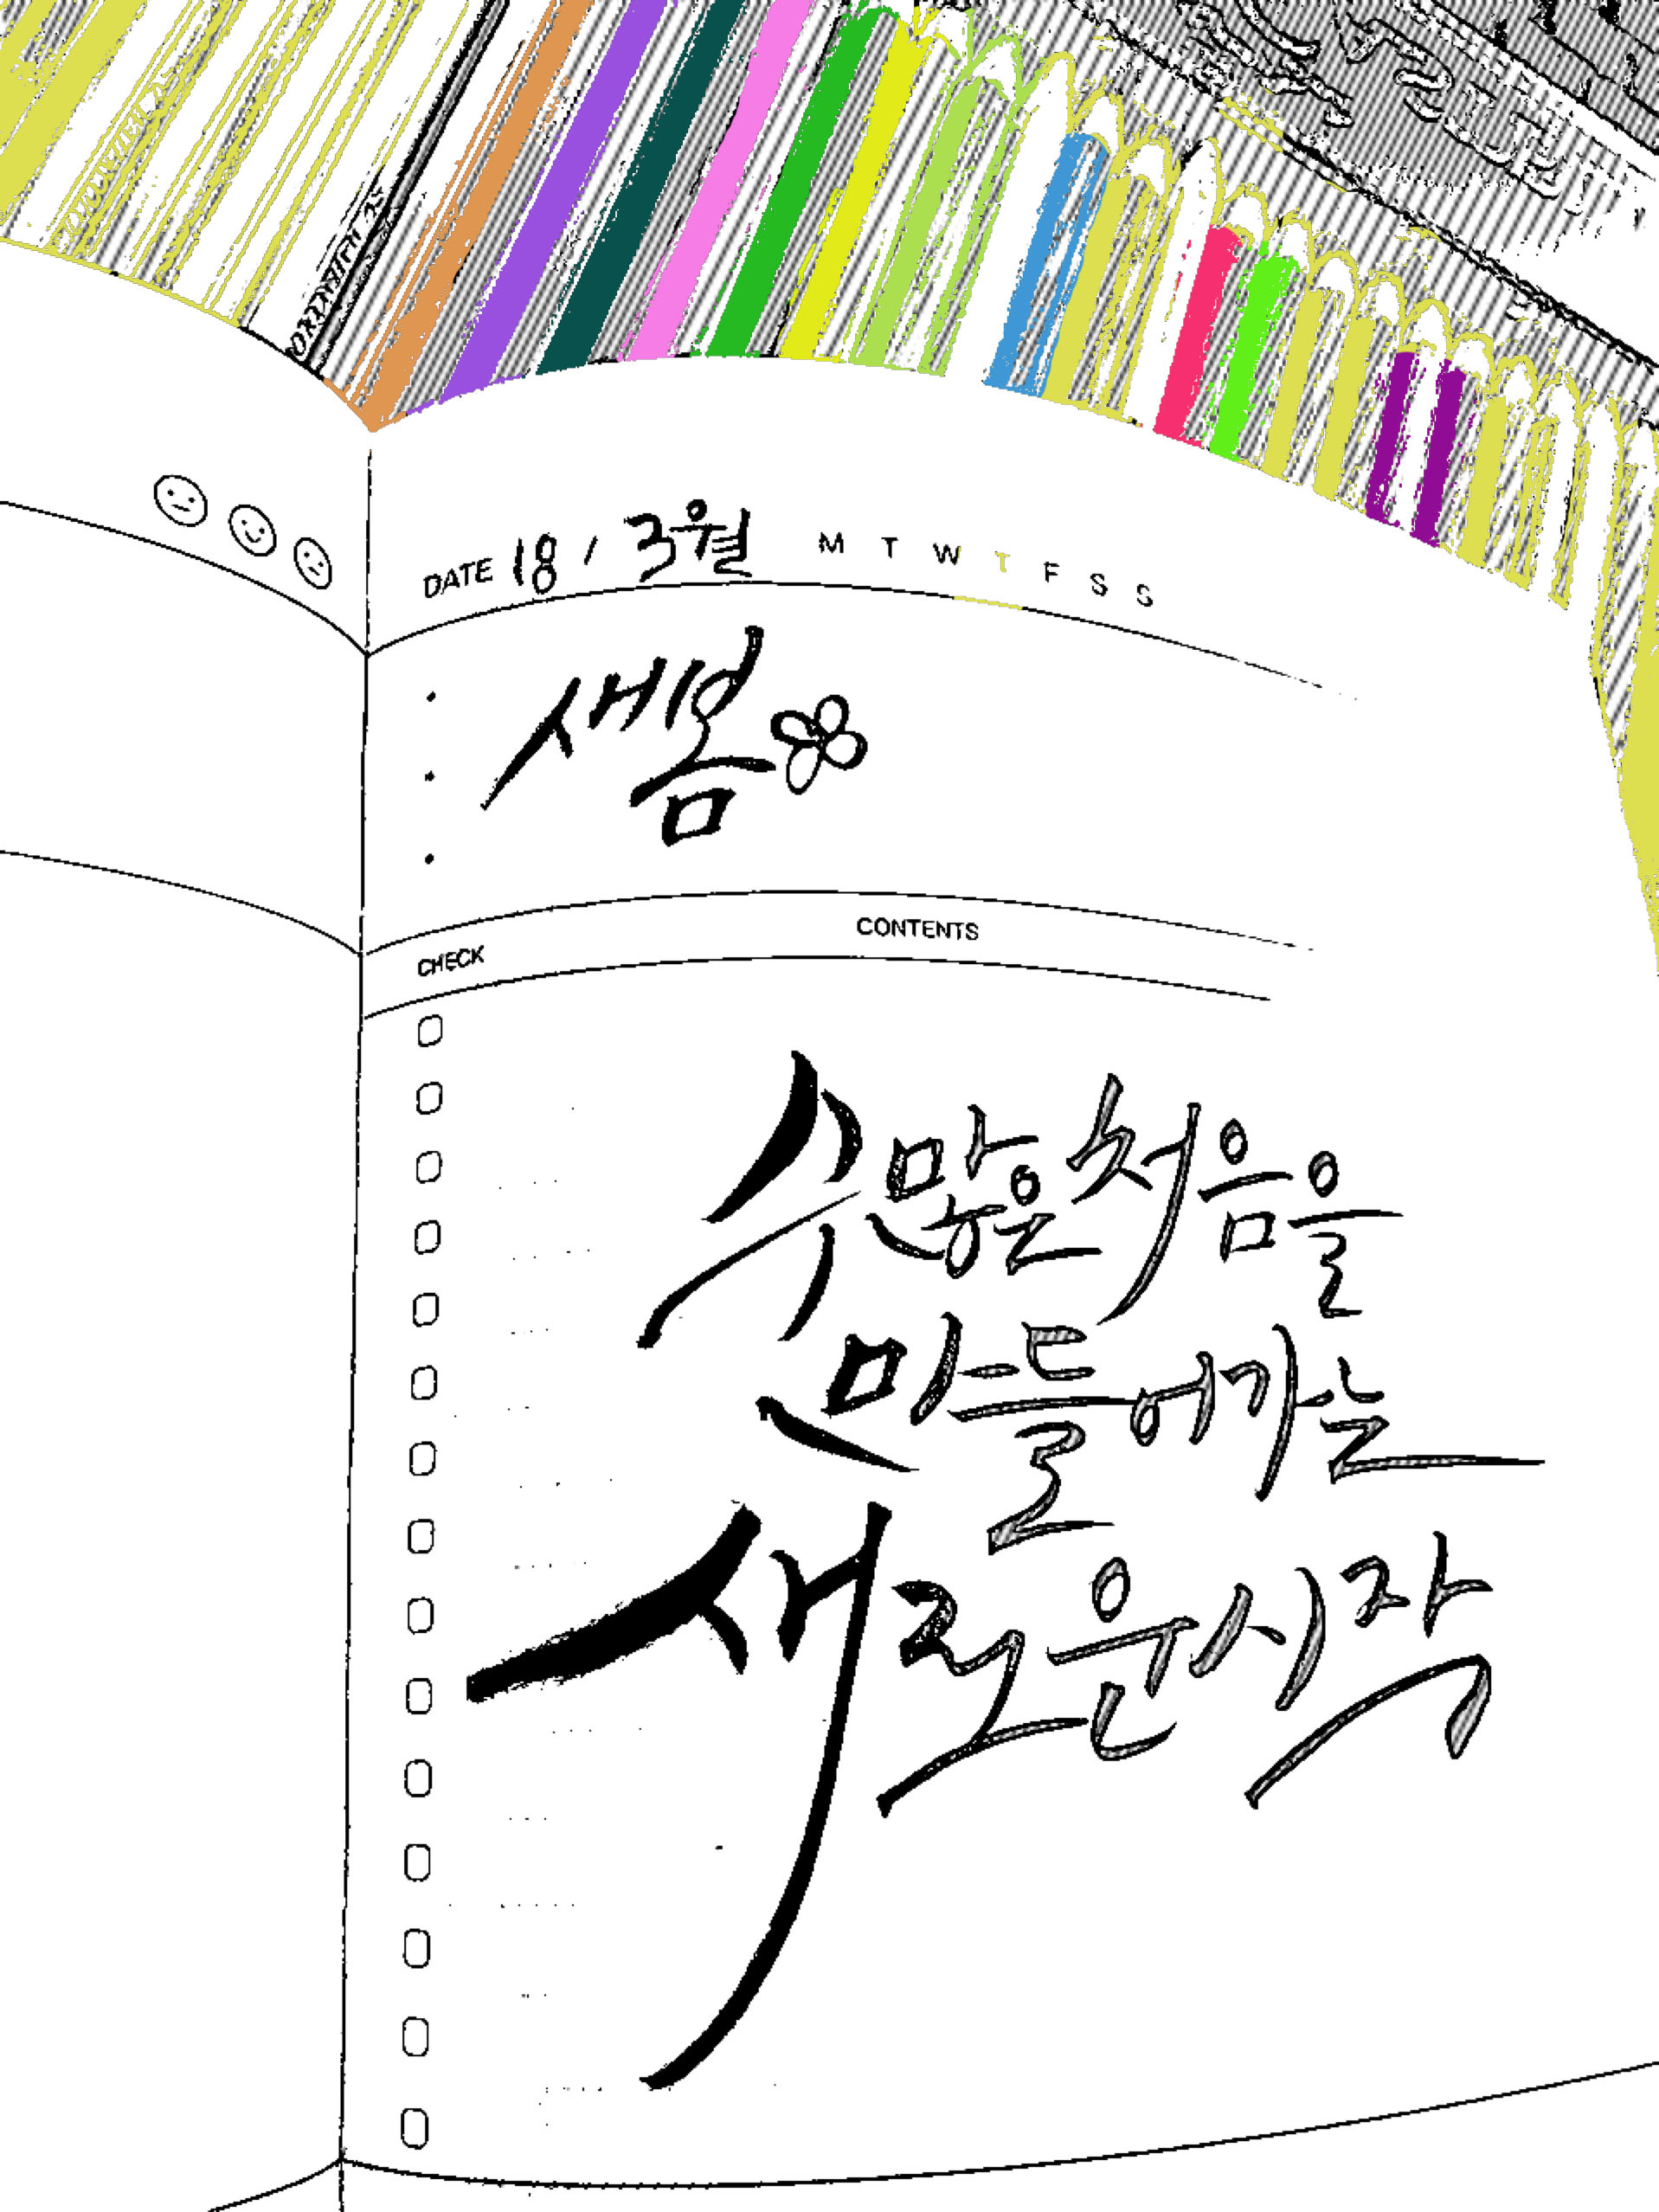 DATE 18 / 3월 M T W T F S S
새봄
CHECK CONTENTS
수많은 처음을
만들어가는
새로운 시작